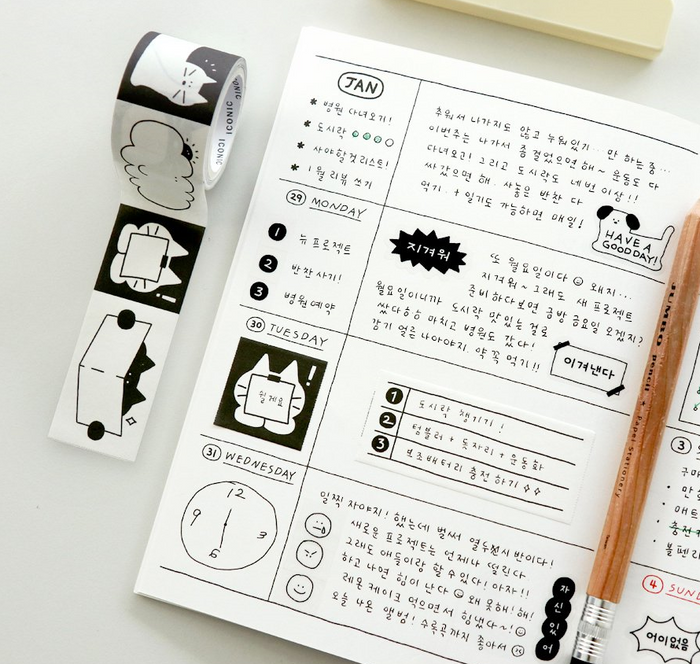 ICONIC
ICONIC
JAN
* 병원 다녀오기!
* 도시락
* 사야할것 리스트!
* 1월 리뷰 쓰기
추워서 나가지도 않고 누워있기... 만 하는 중...
이번주는 나가서 좀 걸었으면 해~ 운동도 다
다녀오고! 그리고 도시락도 네 번 이상!!
싸 갔으면 해. 사놓은 반찬 다
먹기. + 일기도 가능하면 매일!
HAVE A
GOOD DAY!
29 MONDAY
1 뉴 프로젝트
2 반찬 사기!
3 병원 예약
지겨워
또 월요일이다 왜지...
지겨워~ 그래도 새 프로젝트
준비하다보면 금방 금요일 오겠지?
월요일이니까 도시락 맛있는 걸로
쌌다하는 마치고 병원도 갔다!
감기 얼른 나아야지. 약 꼭 먹기!!
이겨낸다
30 TUESDAY
쉴게요
1 도시락 챙기기!
2 텀블러 + 돗자리 + 운동화
3 보조배터리 충전하기
31 WEDNESDAY
12
9
3
6
일찍 자야지! 했는데 벌써 열두시 반이다!
새로운 프로젝트는 언제나 떨린다
그래도 애들이랑 할 수 있다! 아자!!
하고 나면 힘이 난다 왜 못해! 해!
레몬 케이크 먹으면서 힘냈다~!
오늘 나온 앨범! 수록곡까지 좋아서
자신있어
JUMBO pencil + Paper Stationery
3
구마
매트
충전
볼펜
4 SUN
어이없음